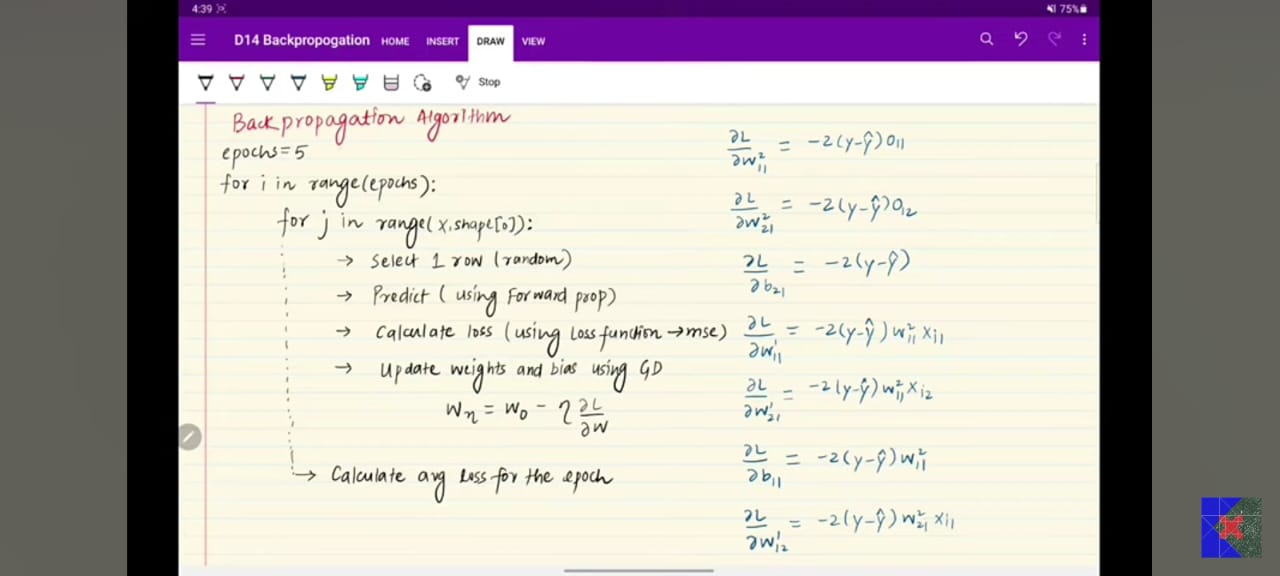 4:39
75%
D14 Backpropogation HOME INSERT DRAW VIEW
Stop
Backpropagation Algorithm
epochs=5
for i in range(epochs):
for j in range(x.shape[0]):
→ Select 1 row (random)
→ Predict (using Forward prop)
→ Calculate loss (using Loss function → mse)
→ Update weights and bias using GD
Wn = W0 - η ∂L/∂W
→ Calculate avg loss for the epoch
∂L/∂W²₁₁ = -2(y-ŷ)O11
∂L/∂W²₂₁ = -2(y-ŷ)O12
∂L/∂b21 = -2(y-ŷ)
∂L/∂W¹₁₁ = -2(y-ŷ)W²₁₁ Xi1
∂L/∂W¹₂₁ = -2(y-ŷ)W²₁₁ Xi2
∂L/∂b11 = -2(y-ŷ)W²₁₁
∂L/∂W¹₁₂ = -2(y-ŷ)W²₂₁ Xi1